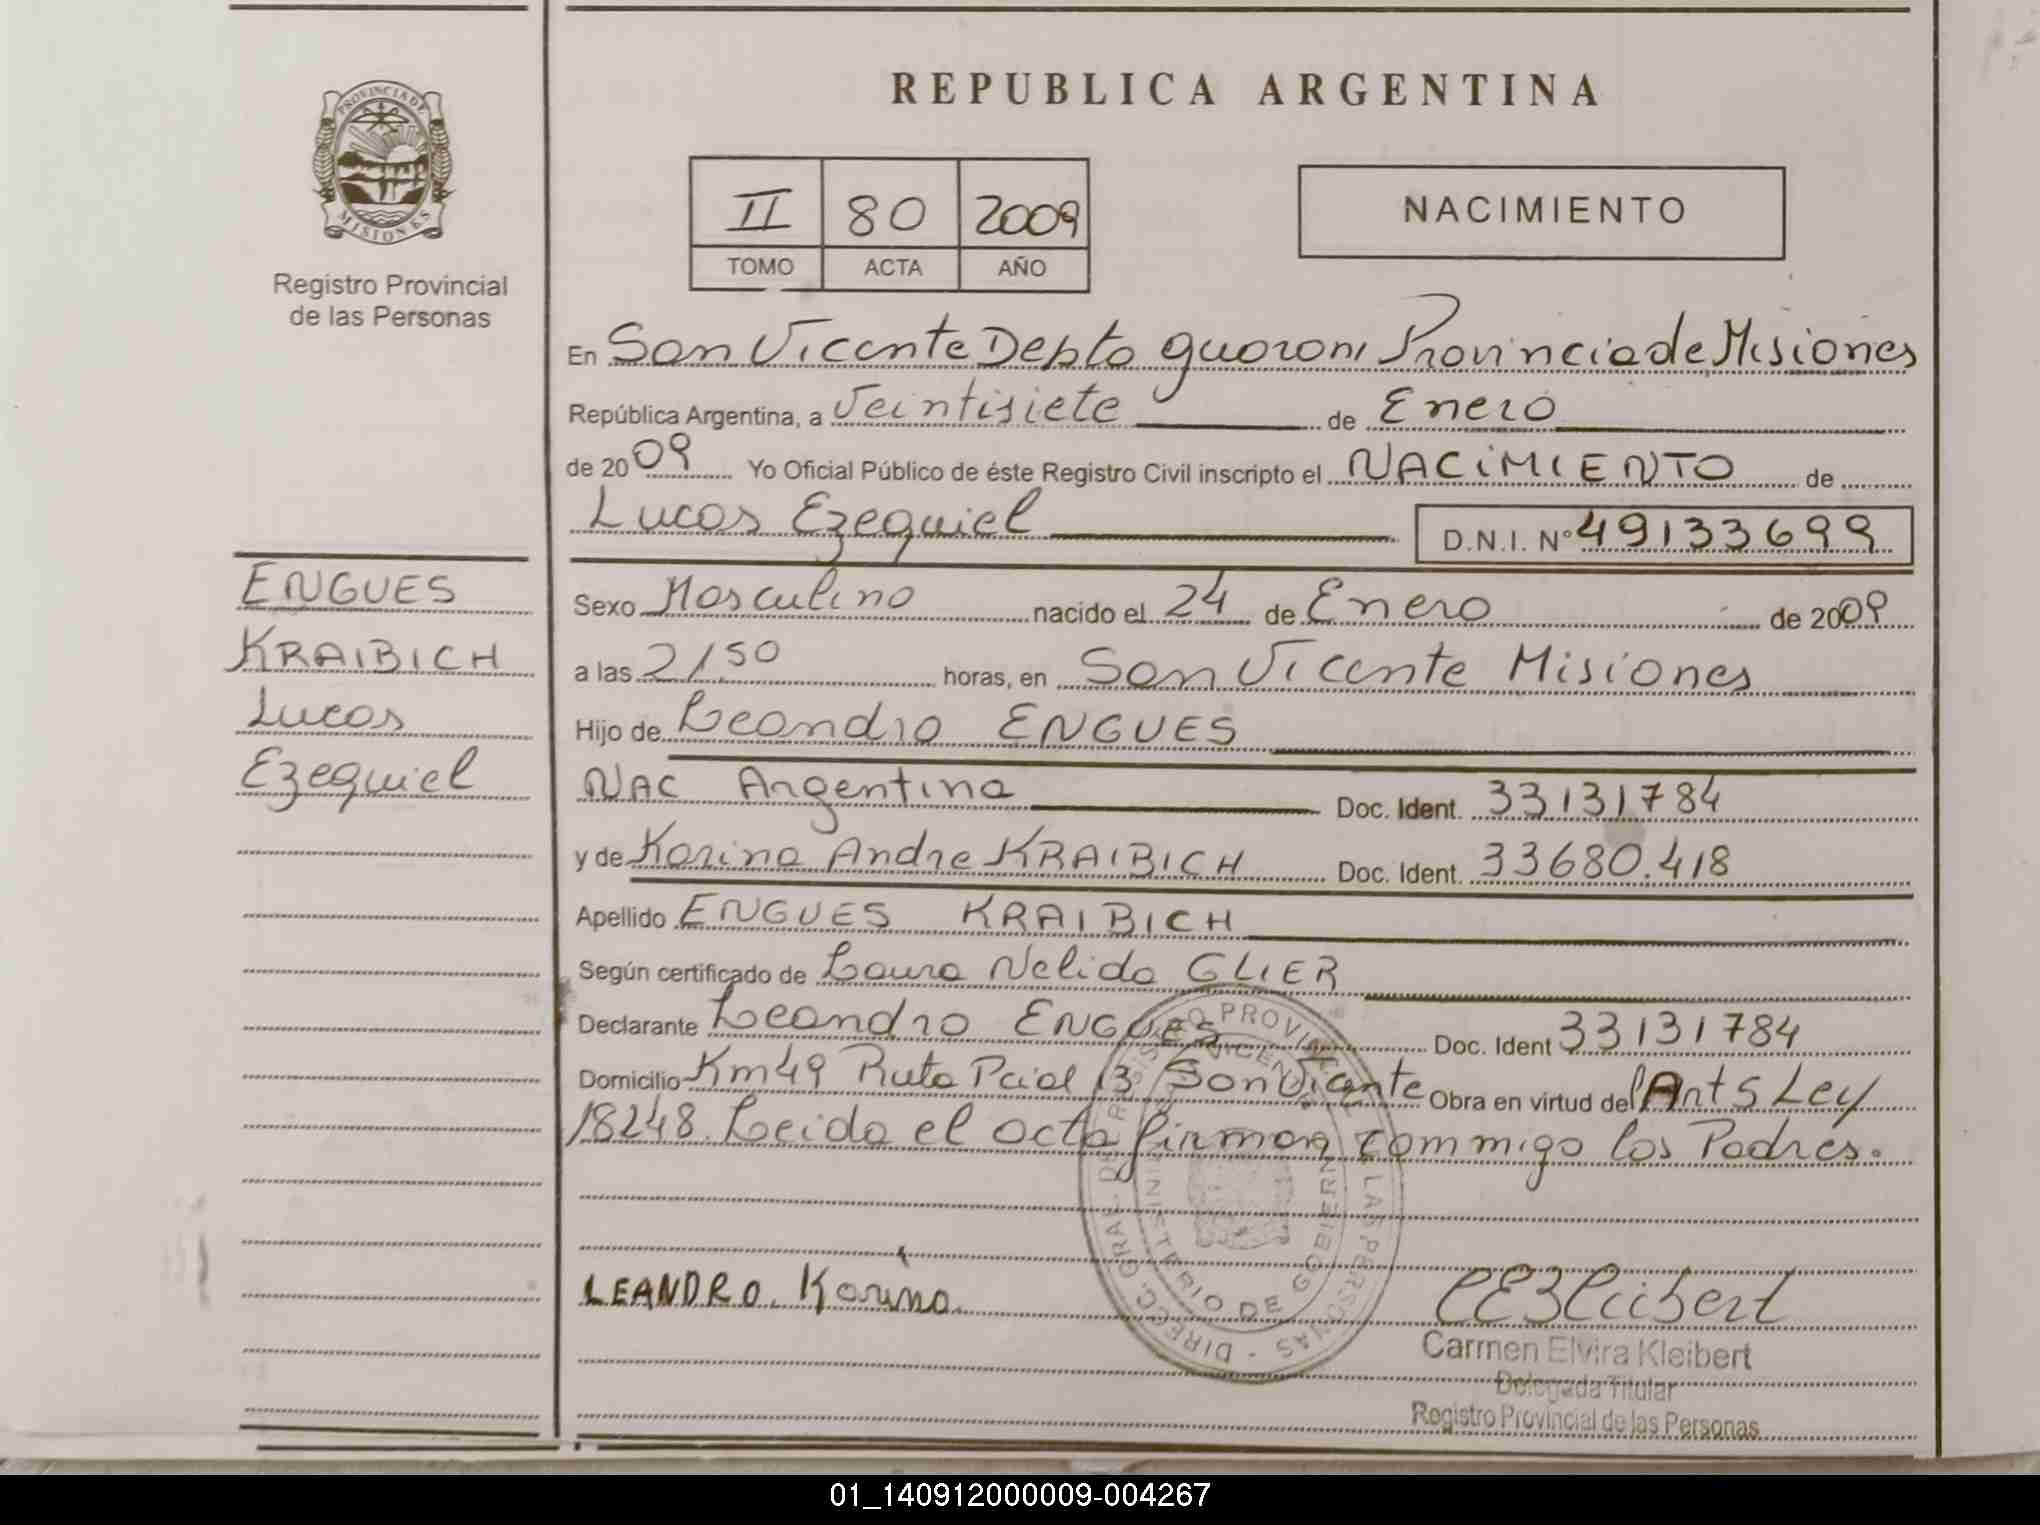 PROVINCIA DE
MISIONES
Registro Provincial
de las Personas
REPUBLICA ARGENTINA
II 80 2009
TOMO ACTA AÑO
NACIMIENTO
En San Vicente Depto guarani Provincia de Misiones
República Argentina, a Veintisiete de Enero
de 2009 Yo Oficial Público de éste Registro Civil inscripto el NACIMIENTO de
Lucas Ezequiel D.N.I. N° 49133699
ENGUES
KRAIBICH
Lucas
Ezequiel
Sexo Masculino nacido el 24 de Enero de 2009
a las 21,50 horas, en San Vicente Misiones
Hijo de Leandro ENGUES
NAC Argentina Doc. Ident. 33131784
y de Karina Andre KRAIBICH Doc. Ident. 33680.418
Apellido ENGUES KRAIBICH
Según certificado de Laura Nelida GLIER
Declarante Leandro ENGUES Doc. Ident 33131784
Domicilio Km49 Ruta Pcial 13 San Vicente Obra en virtud del Art 5 Ley
18248. Leida el acta firman commigo los Padres.
LEANDRO. Karina.
DIRECC. GRAL. DE REGISTRO PROVINCIAL DE LAS PERSONAS
MINISTERIO DE GOBIERNO
Carmen Elvira Kleibert
Delegada Titular
Registro Provincial de las Personas
01_140912000009-004267